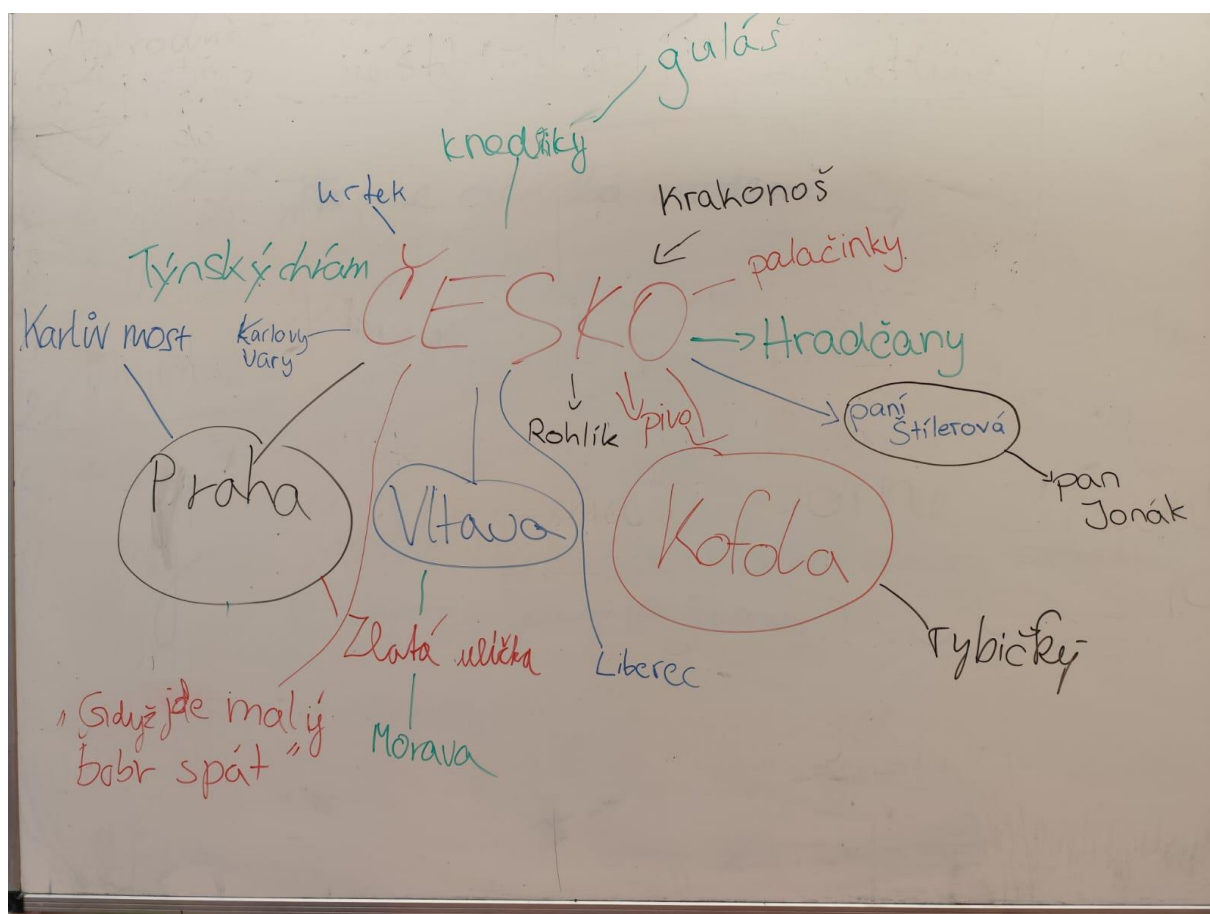 guláš
knedlíky
krtek
Krakonoš
Týnský chrám
ČESKO
palačinky
Karlův most
Karlovy
Vary
Hradčany
Rohlík
pivo
paní
Štílerová
Praha
Vltava
Kofola
pan
Jonák
Zlatá ulička
Liberec
Tybičký
„Gdyž jde malý
bobr spát"
Morava